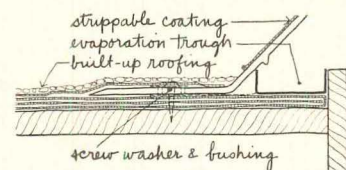 strippable coating
evaporation trough
built-up roofing
screw washer & bushing